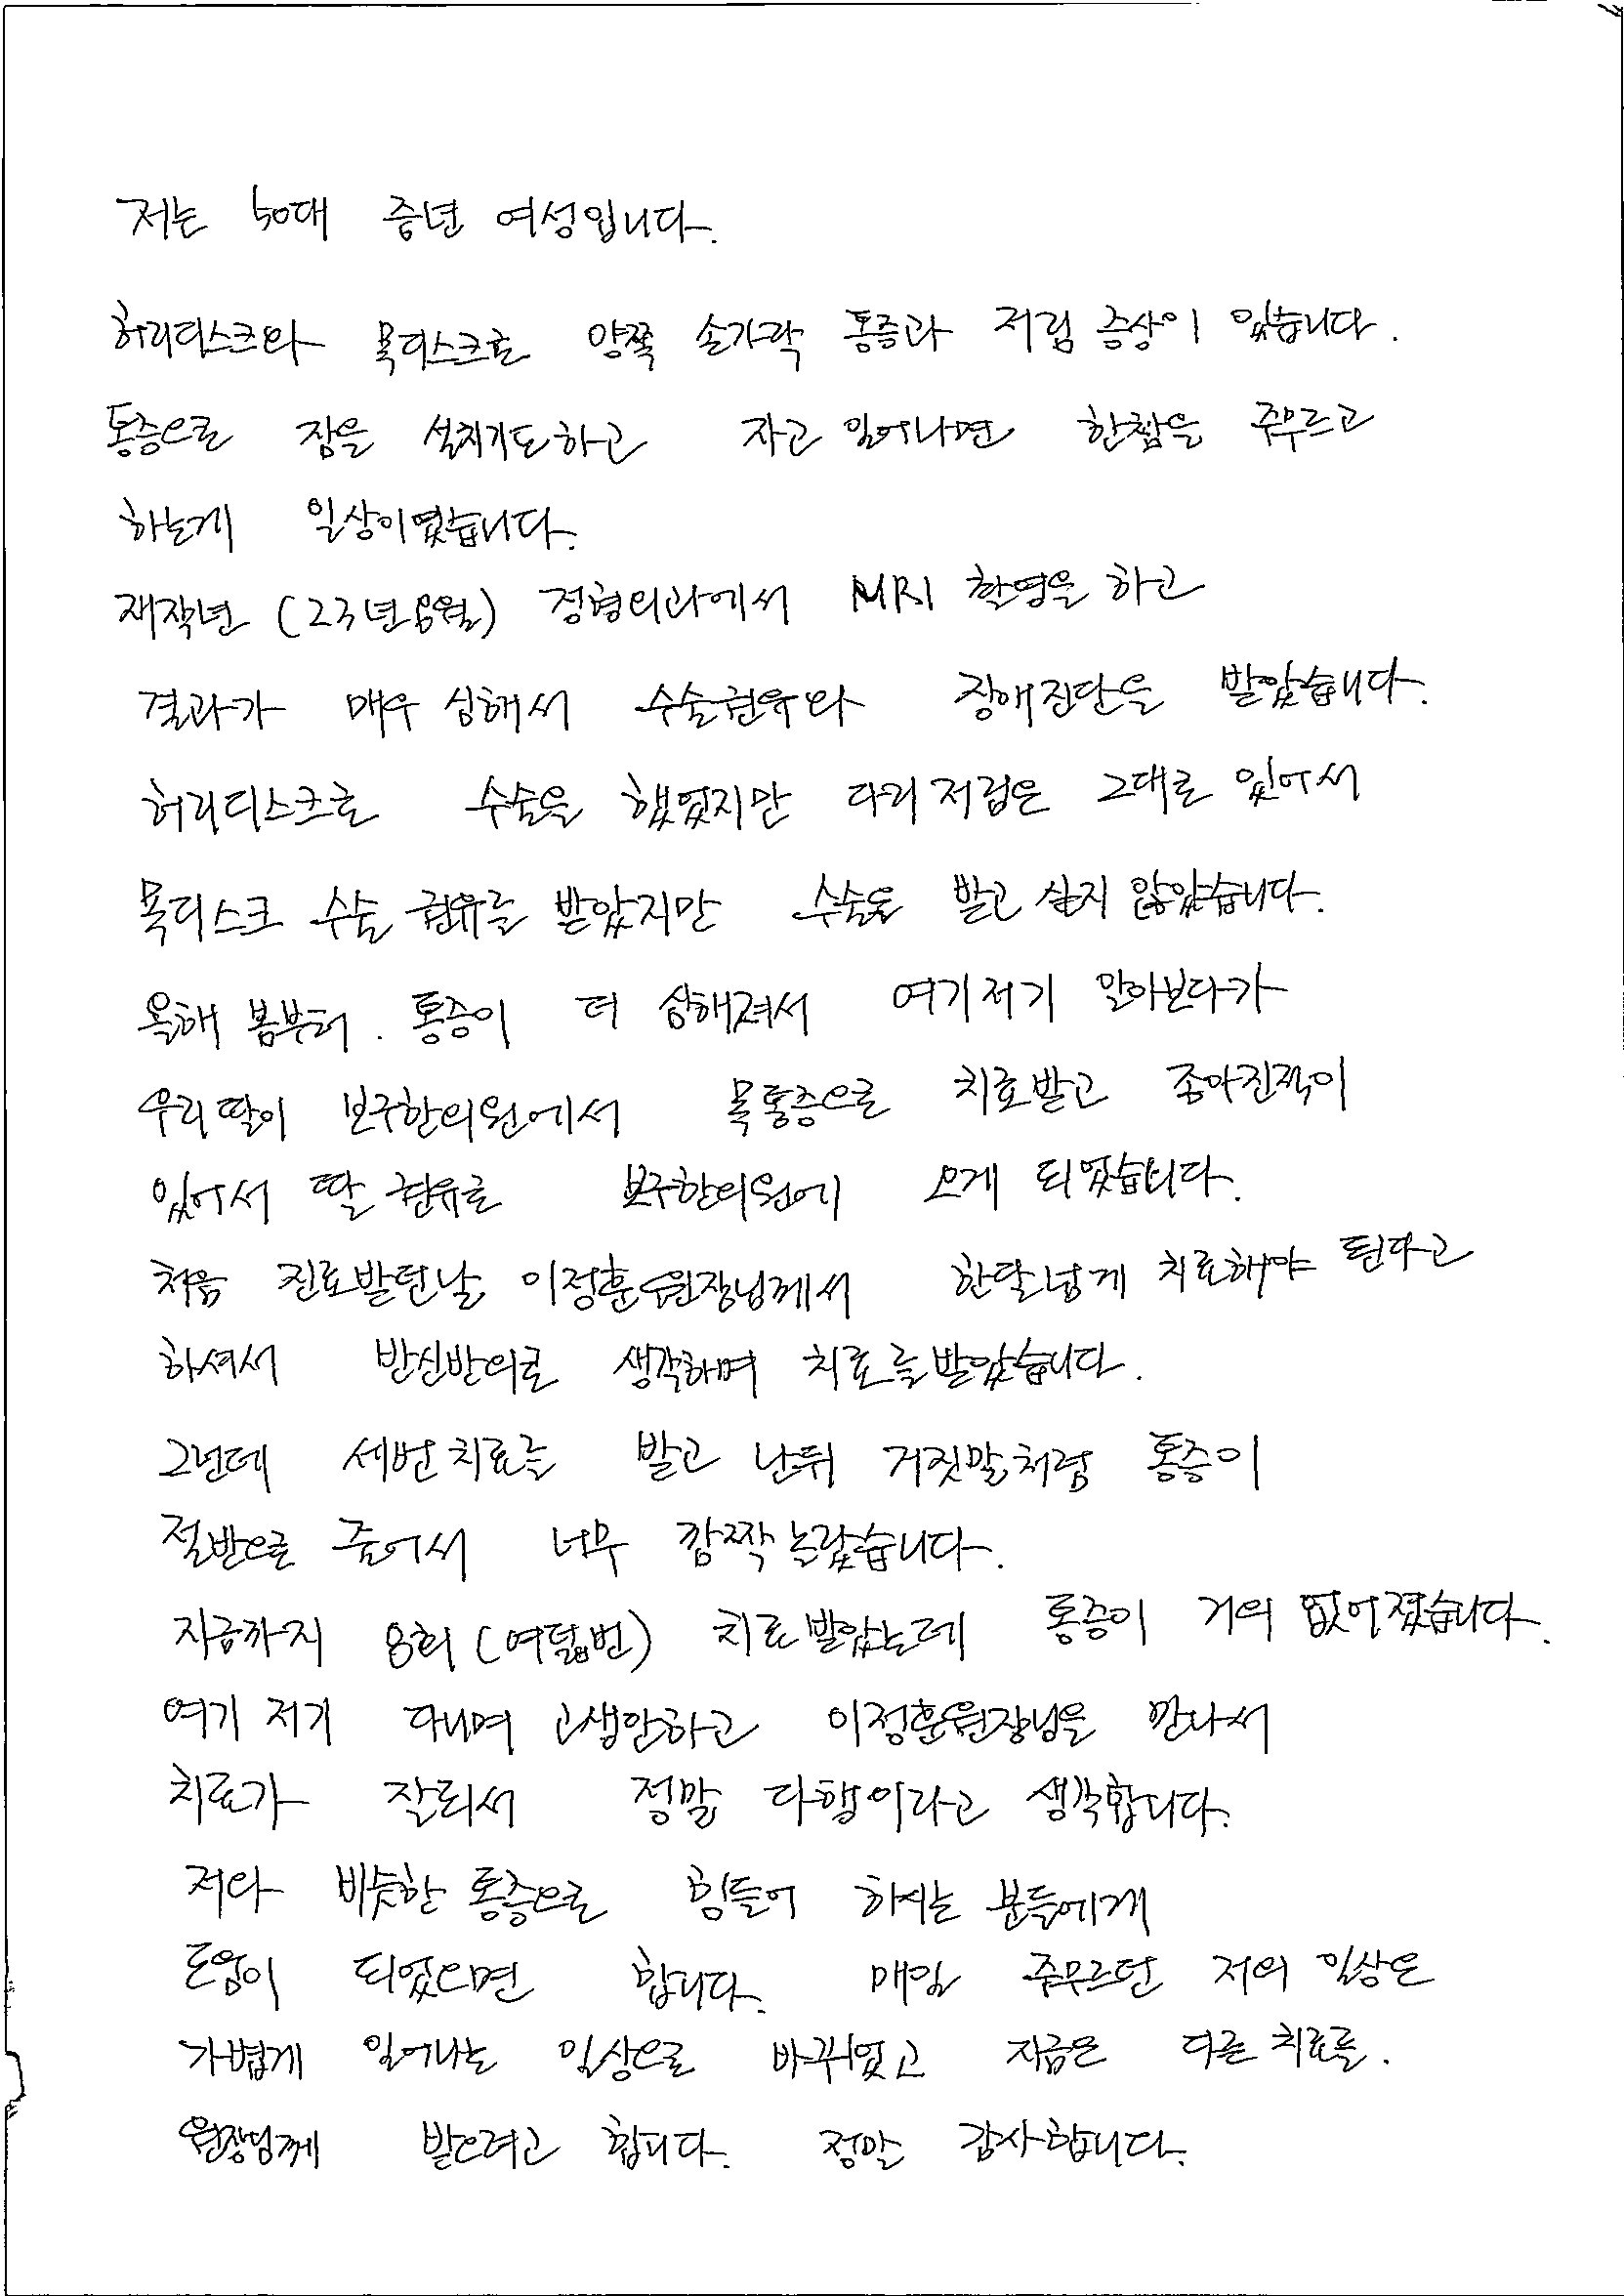 저는 50대 중년 여성입니다.
허리디스크와 목디스크로 양쪽 손가락 통증과 저림 증상이 있습니다.
통증으로 잠을 설치기도하고 자고 일어나면 한참을 주무르고
하는게 일상이였습니다.
재작년 (23년 8월) 정형외과에서 MRI 촬영을 하고
결과가 매우 심해서 수술권유와 장애진단을 받았습니다.
허리디스크로 수술을 했었지만 다리저림은 그대로 있어서
목디스크 수술 권유를 받았지만 수술을 받고 싶지 않았습니다.
올해 봄부터. 통증이 더 심해져서 여기저기 알아보다가
우리딸이 보구한의원에서 목통증으로 치료받고 좋아진적이
있어서 딸 권유로 보구한의원에 오게 되었습니다.
처음 진료받던날 이정훈원장님께서 한달넘게 치료해야 된다고
하셔서 반신반의로 생각하며 치료를받았습니다.
그런데 세번치료를 받고 난뒤 거짓말처럼 통증이
절반으로 줄어서 너무 깜짝놀랐습니다.
지금까지 8회 (여덟번) 치료받았는데 통증이 거의 없어졌습니다.
여기 저기 다니며 고생안하고 이정훈원장님을 만나서
치료가 잘되서 정말 다행이라고 생각합니다.
저와 비슷한 통증으로 힘들어 하시는 분들에게
도움이 되었으면 합니다. 매일 주무르던 저의 일상은
가볍게 일어나는 일상으로 바뀌였고 지금은 다른치료를.
원장님께 받으려고 합니다. 정말 감사합니다.